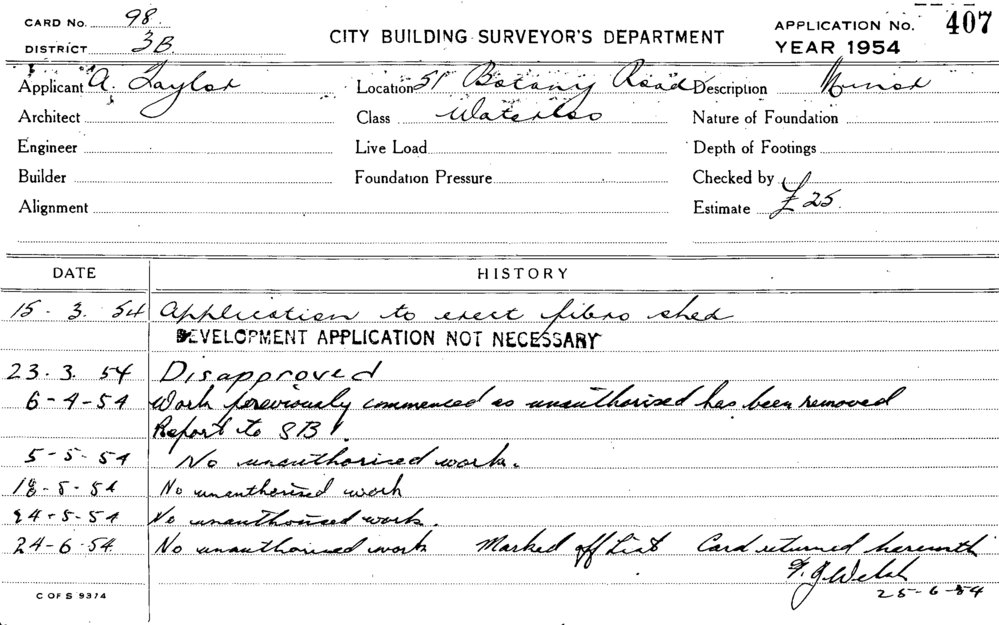 CARD No. 98.
DISTRICT 3B
CITY BUILDING SURVEYOR'S DEPARTMENT
APPLICATION No. 407
YEAR 1954
Applicant A. Taylor Location 51 Botany Road Description Minor
Architect Class Waterloo Nature of Foundation
Engineer Live Load Depth of Footings
Builder Foundation Pressure Checked by
Alignment Estimate £25
DATE HISTORY
15-3.54 Application to erect fibro shed
DEVELOPMENT APPLICATION NOT NECESSARY
23.3.54 Disapproved
6-4-54 Work previously commenced as unauthorised has been removed
Report to SB
5-5-54 No unauthorised work.
18-5-54 No unauthorised work
24-5-54 No unauthorised work.
24-6-54. No unauthorised work Marked off List Card returned herewith
F.J. Welsh
25-6-54
C OF S 9374